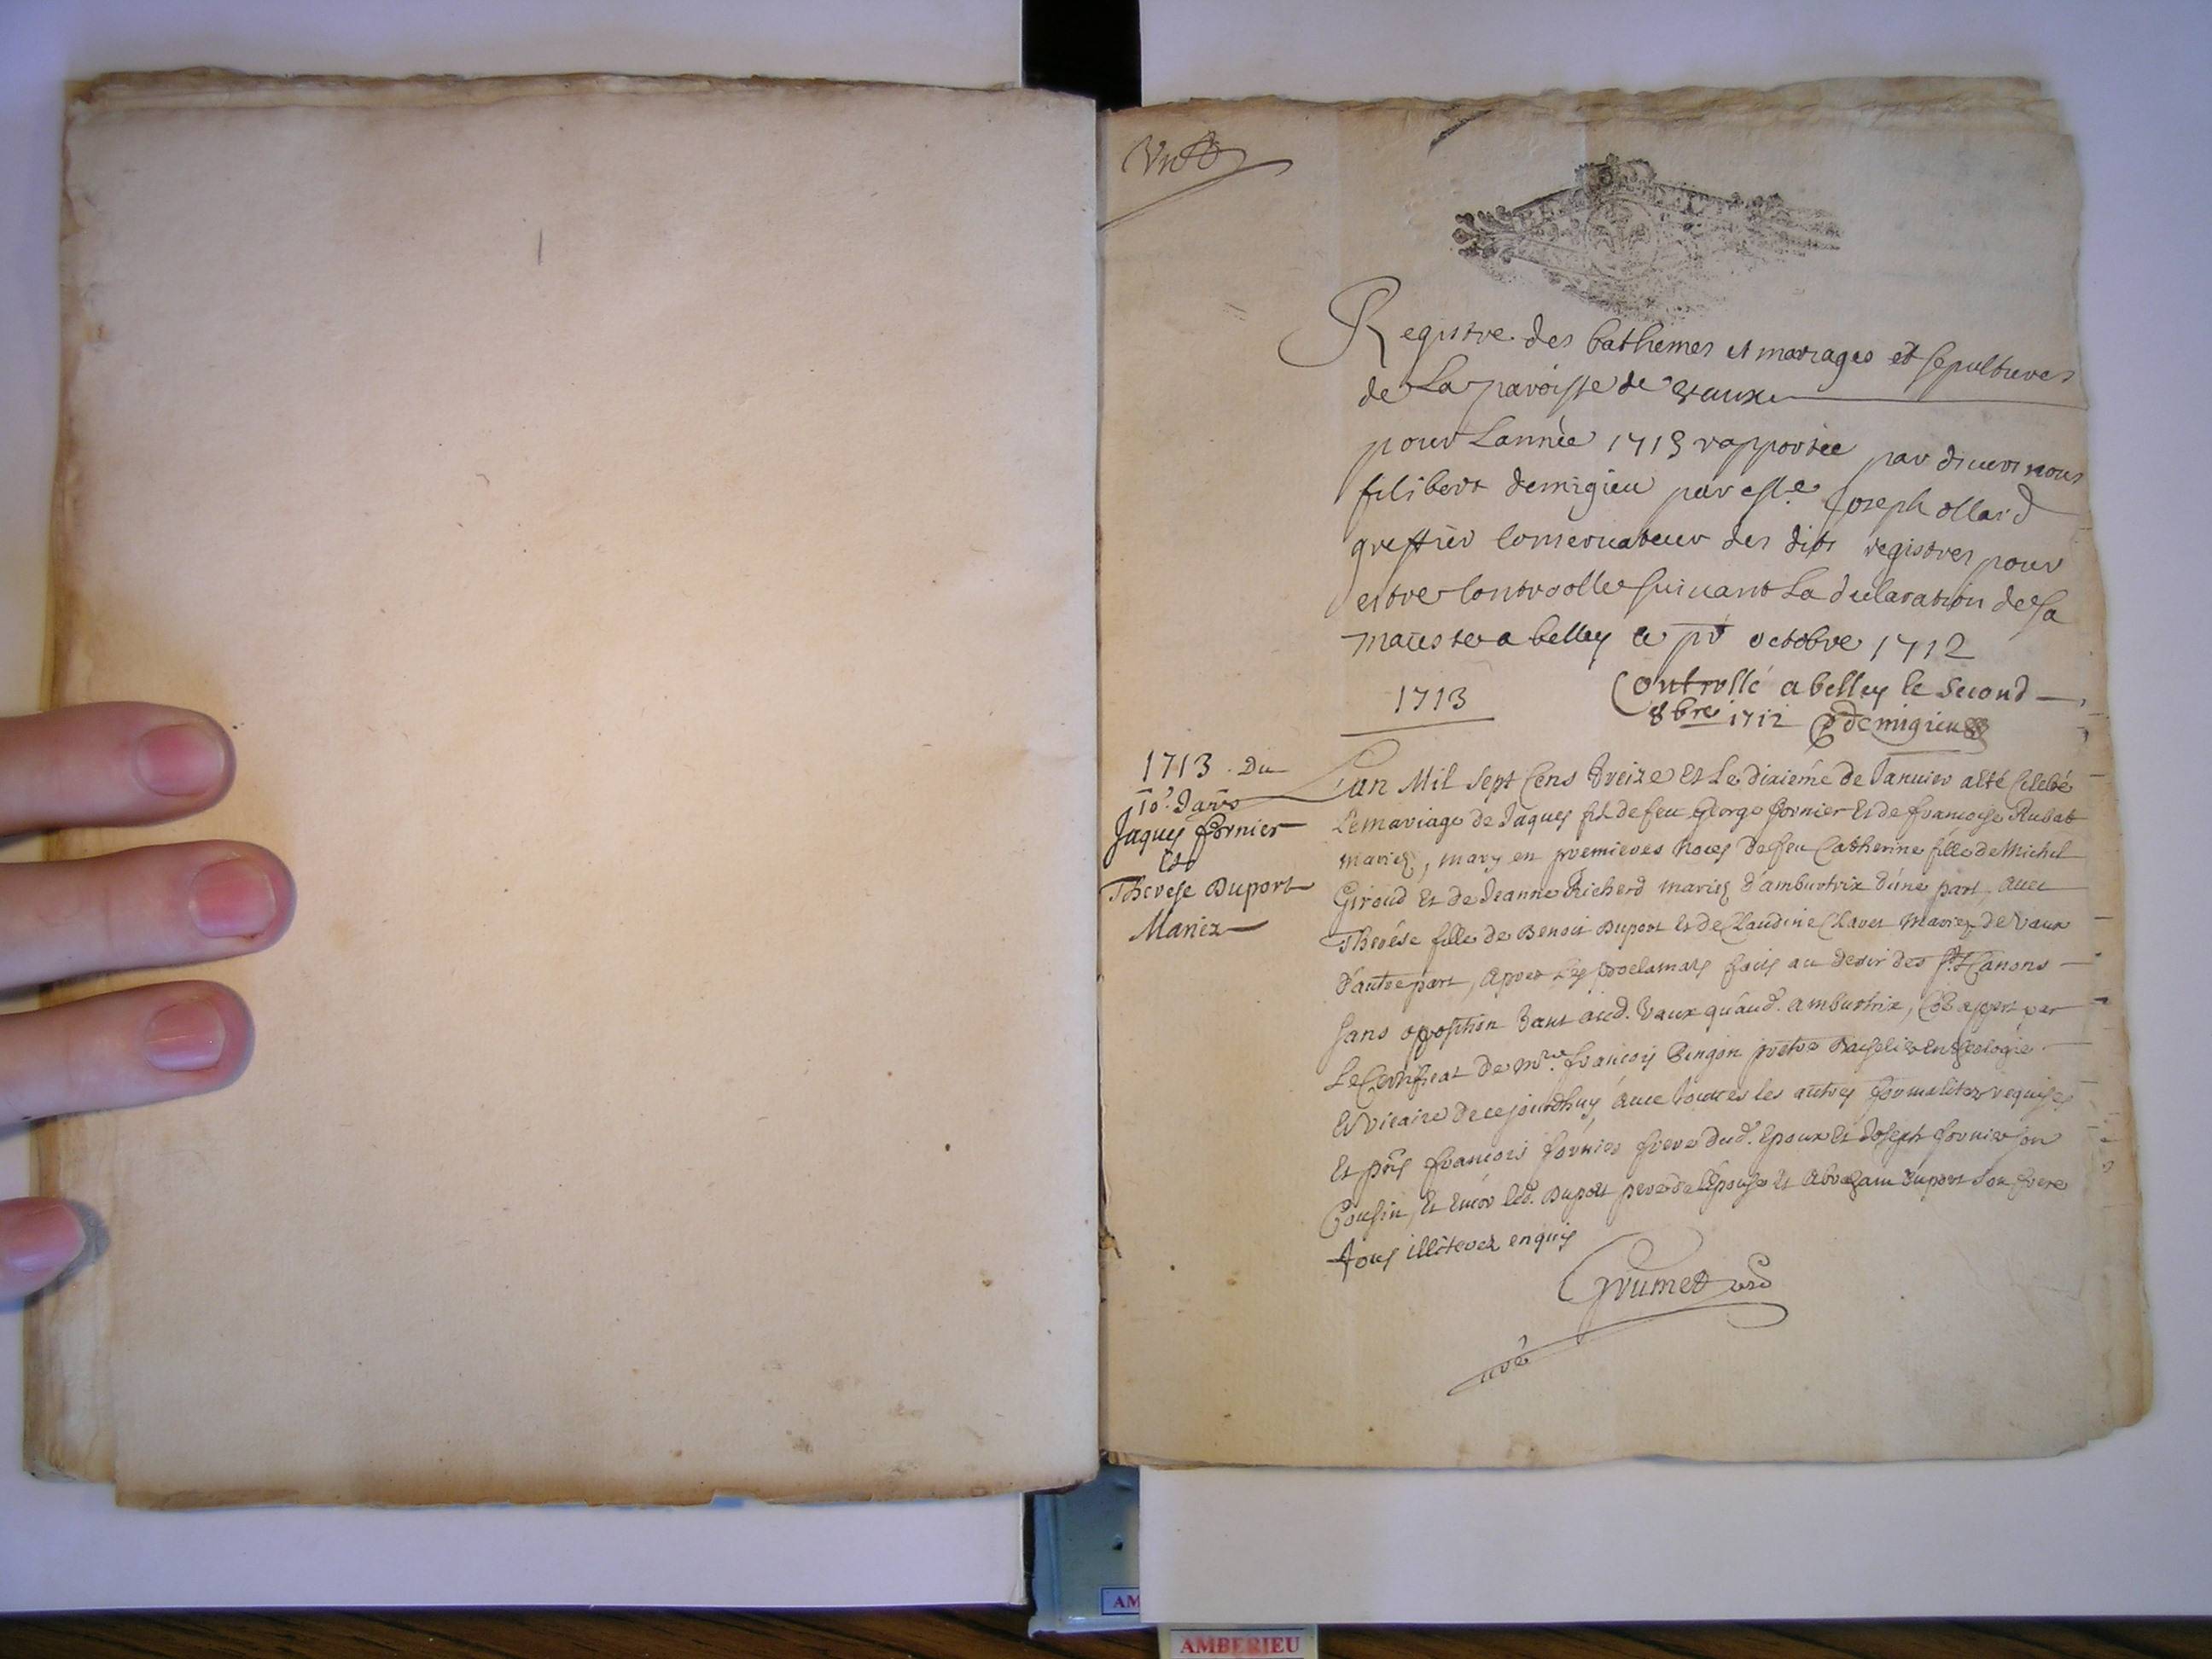 Registre des bathemes et mariages et sepultures
de La paroisse de vaux
pour Lannée 1713 rapportée par
filibert demigieu par Joseph ollard
greffier Conservateur des dits registres pour
estre Controolle suivant La declaration de sa
maieste a belley le pr octobre 1712
Controllé a belley le second
8bre 1712 demigieu
1713
1713 Du
10e Janv
Jaques fornier
Et
Therese Duport
Mariez
L'an Mil sept Cens treize Et Le dixiéme de Janvier a été Celebé
Le mariage de Jaques fils de feu George fornier Et de francoise Rubat
mariez, mary en premieres noces de feu Catherine fille de Michel
Giroud Et de Jeanne Richerd mariez d'ambutrix d'une part, avec
Therése fille de Benoit Duport Et de Claudine Chavet mariez de Vaux
d'autre part, apres Les proclamats faits au desir des Sts Canons
sans oposition tant aud. Vaux qu'aud. ambutrix, appert par
Le Certificat de Mre. françois prétre Bachelier en theologie
Et Vicaire de ce jourdhuy avec toutes les autres formalitez requises
Et pnts francois fornier frere dud. Epoux Et Joseph fornier son
Cousin, Et led. Duport pere de l'Epouse Et Abraham Duport son frere
tous illiterez enquis
Grumet
curé
AMBERIEU